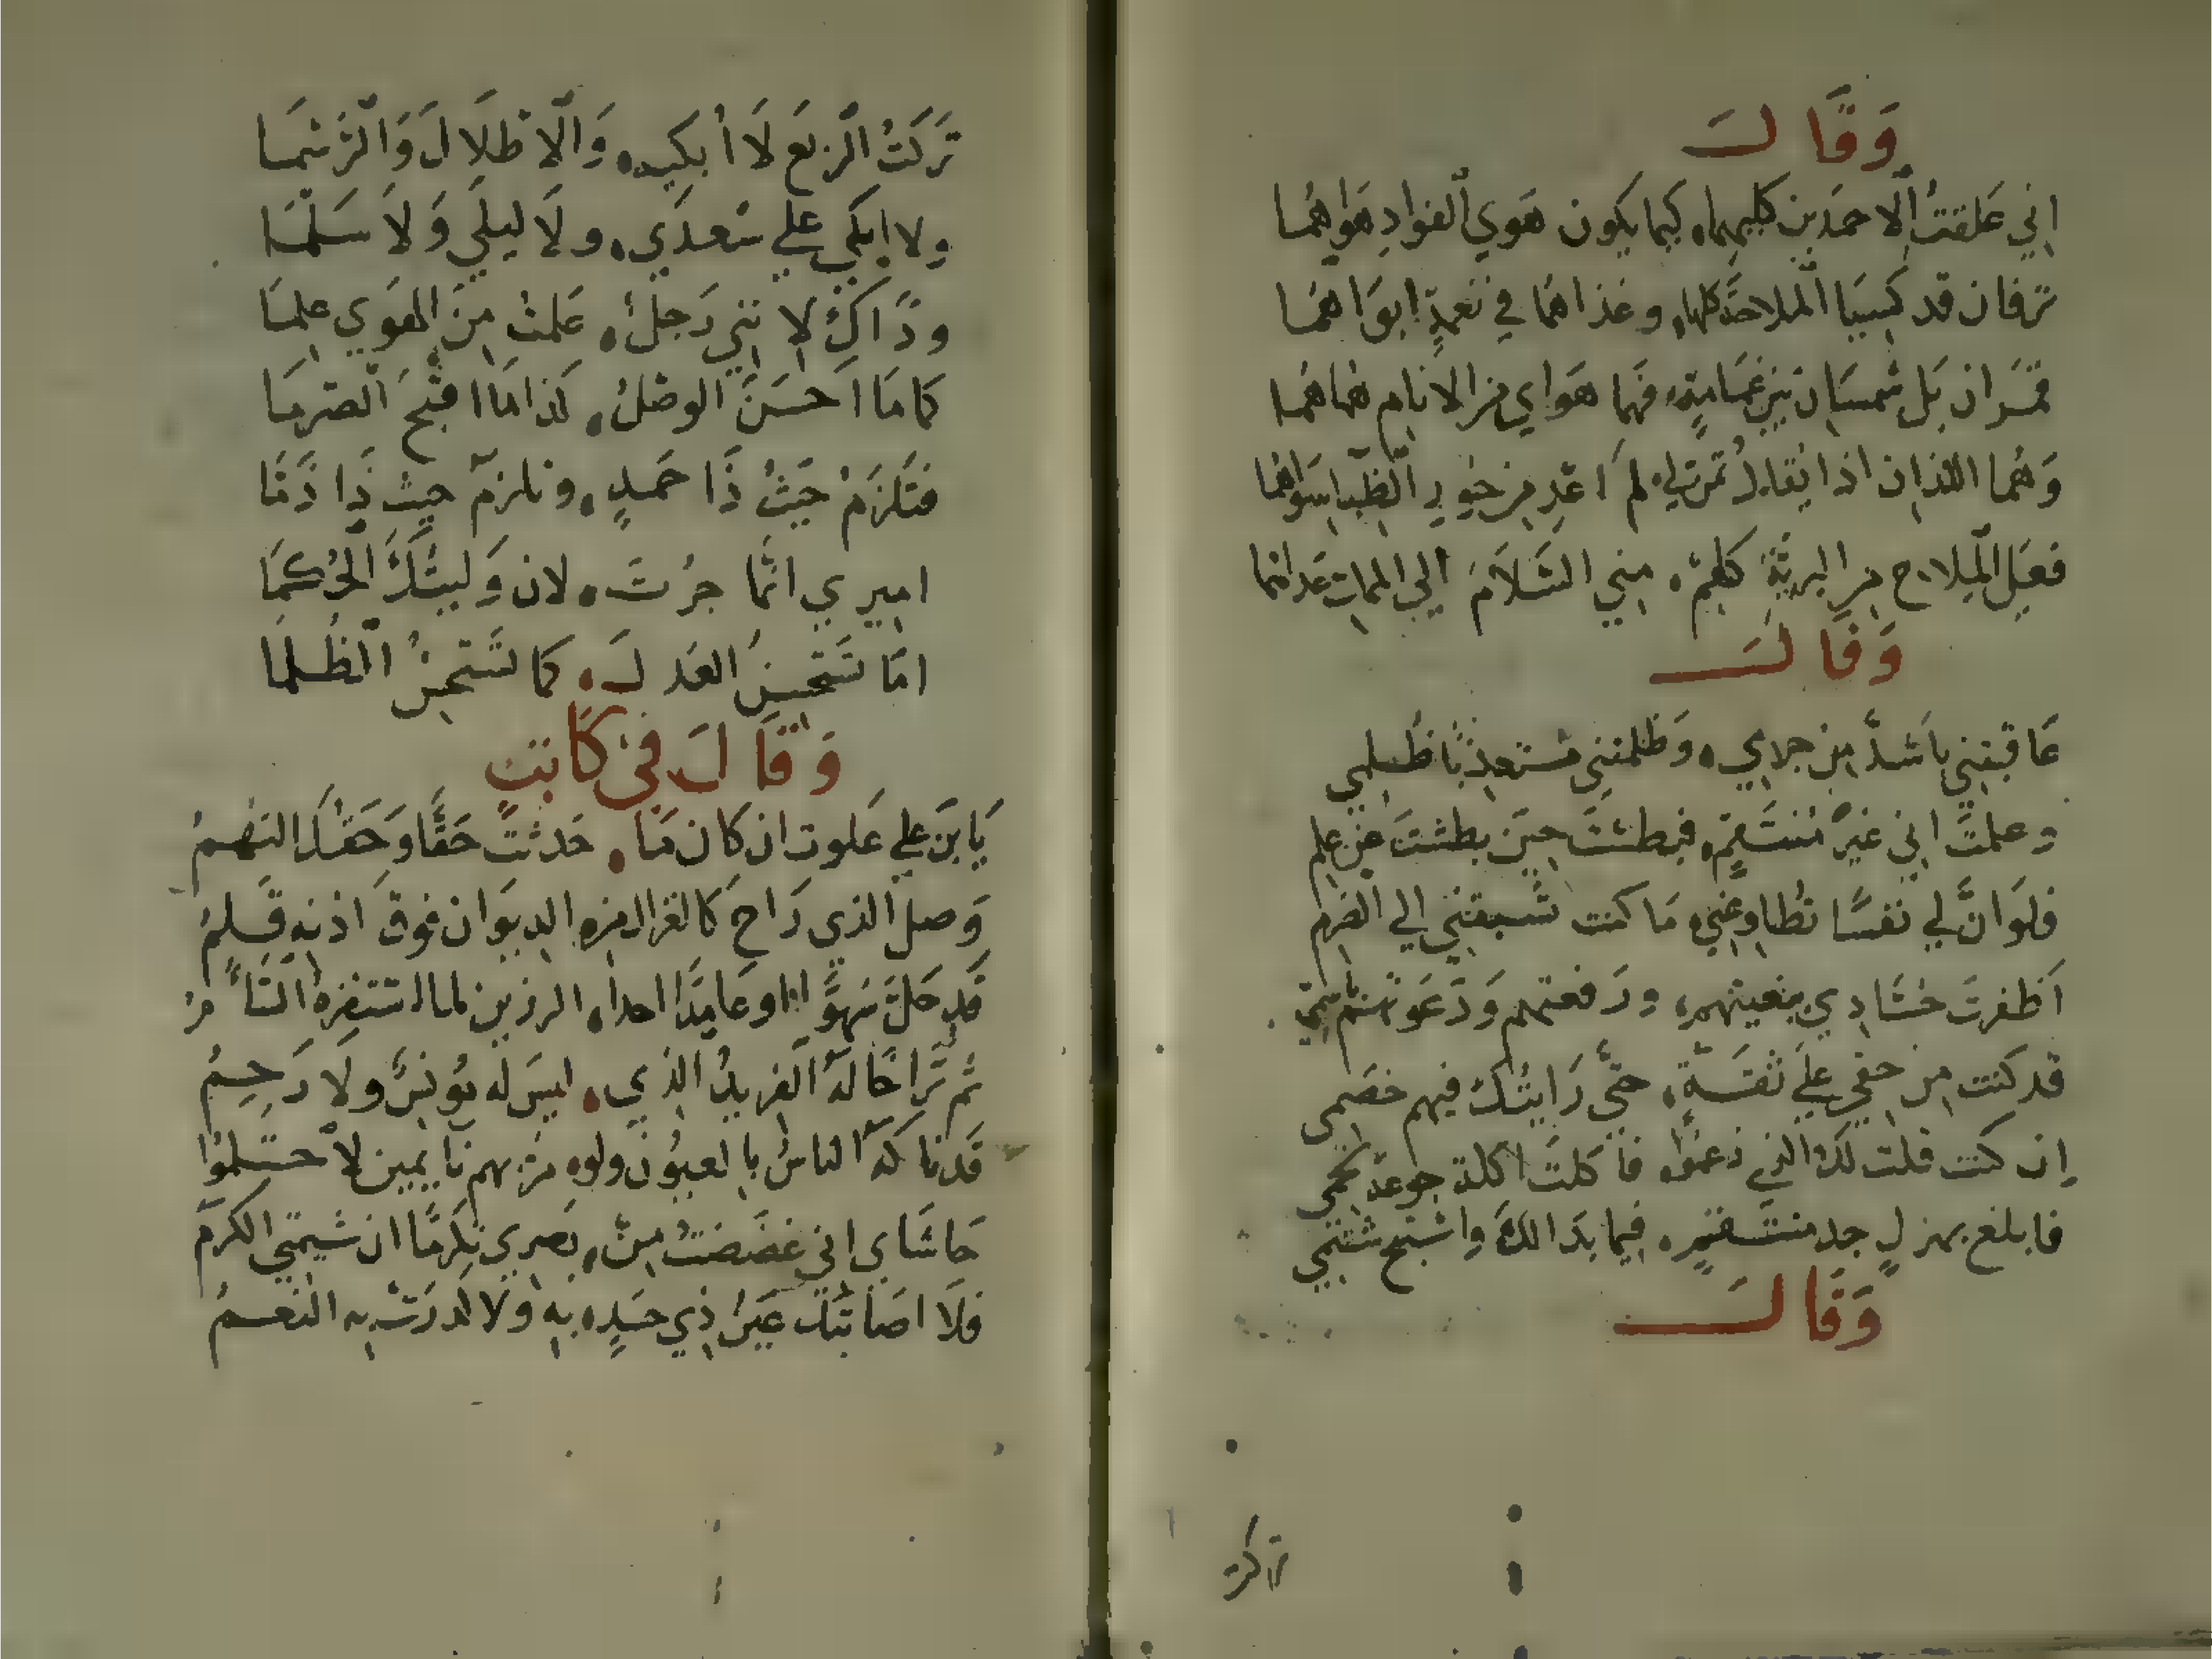 وَقَالَ
اني عَلقتُ الاحمَدين كليهِما، كيما يكون هَوي الفوادِ هَواهُما
ترفان قد كسِيَا الملاحَة كلها، وغذاهُما في نعمةٍ ابوَاهمَا
قمَران بَل شمسَان بَين غمَامةٍ، فهما هَواي من الانامِ هُما همَا
وَهُما اللذان اذا يُقالُ لم اعْدِ من الظِّباسِوَاهُما
فعَلي المِلاح من البريَّةِ كلهِمْ، مِني السَّلَامَ الي المماتِ عَداهُما
وَقَالَ
عَاقبتني باشدَّ من جرمي، وَظلمتني مُستعذِبًا ظُلمي
وعلمتَ اني غيرُ مُنتَقمٍ، فبطشتَ حِينَ بطشتَ عن علم
فلوَانَّ لي نفسًا تُطاوعُني، مَا كنت تسبقني الي الغرم
اَظفرتَ حُسَّادِي ببغيتهم، ورَفعتهم وَدَعَوتهم باسمي
قد كنت من حقي علي ثقَةٍ، حتَّي رَايتُكَ فيهم خصَمي
إن كنت قلت لكَ الذي زعمُوا، فاكلتُ اكلة جوعةٍ لحمي
فابلغ بهزلٍ جد منتقمٍ، فيما بدَا لكَ واستبح شتمي
وَقَالَ
تركت
تَرَكتُ الرَّبعَ لَا أبكيه، وَالْاطلَالَ وَالرَّسْمَا
ولا ابكي علي سُعدَي، ولَا ليلَي وَلَا سَلمَا
وذَاكَ لِانني رَجلٌ، عَلمتُ مِنَ الهَوي علمَا
كما مَا احسَنَ الوصْلُ، كذا مَا اقبَح الصّرمَا
فتَلزَمُ حَيثُ ذَا حَمدٍ، وتلزم حيث ذَا ذَمَّا
اميري انَّما جُرتَ، لان وَليتُكَ الحُكمَا
امَا تَستحسِنُ العَدلَ، كما تستَحسِنُ الظُلمَا
وَقَالَ فِي كَاتبٍ
يَا بنَ علي عَلوت ان كان مَا، حَدثتَ حَقًّا وَحَقُكَ النهمُ
وَصل الذي رَاحَ كالغزال من الديوَان فوقَ اذنهِ قَلمُ
قَد حَلَّ سَهوًا او عَامِدًا احدا، الرزين لما استفزهُ
ثم تَراخَا لَهُ الفريدُ الذي، ليسَ له مُونِسٌ ولا رَحِمُ
قَدنا كَهُ الناسُ بالعيُون ولوهِ مَرَّ بهم نايمين لَاحتَلمُوا
حَاشَاي اني غضَضتُ مِنْ، بَصَري تَكرّمًا ان شيمَتي الكرَمُ
فلَا اصَابَتْكَ عَينُ ذِي حَسَدٍ، بهِ وَلَا لدرَتْ به النعَمُ